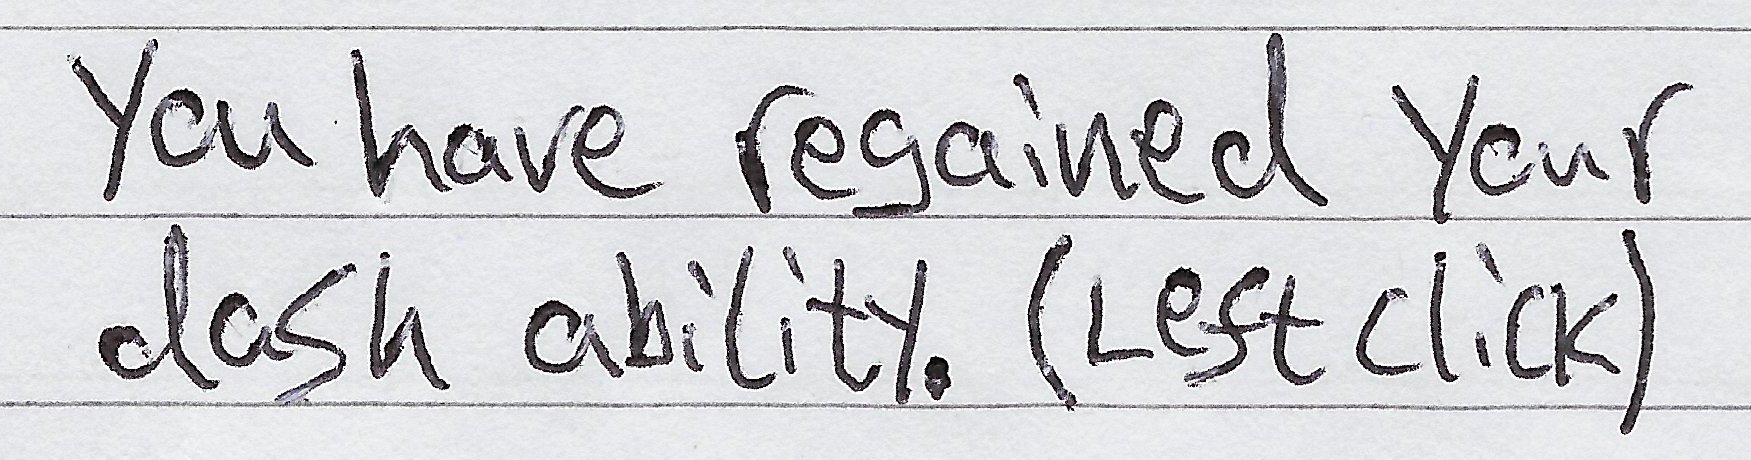 You have regained your
dash ability. (Left click)